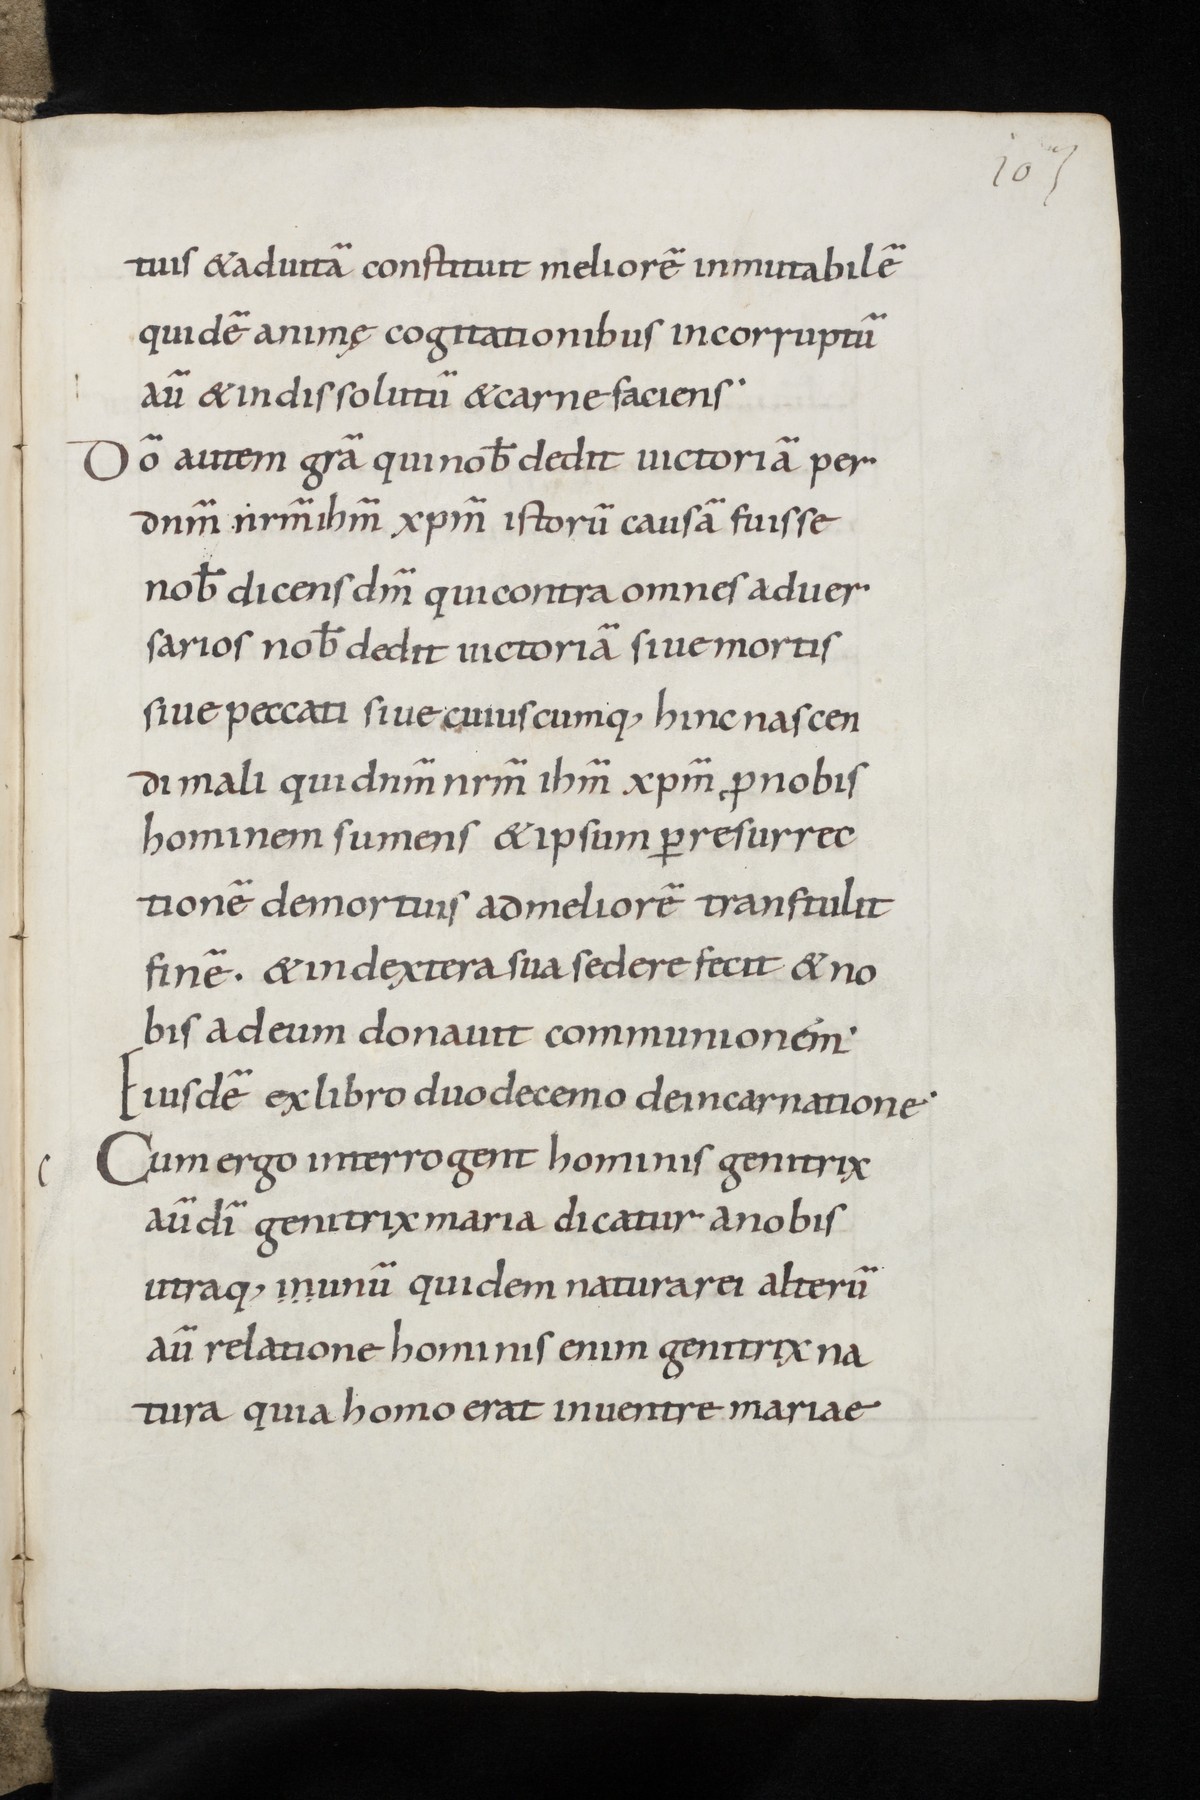 107
tuis & ad uitā constituit meliorē inmutabilē
quidē animę cogitationibus incorruptū
aū & indissolutū & carne faciens·
Dō autem grā qui nob̄ dedit uictoriā per
dnm̄ nrm̄ ihm̄ xpm̄ istorū causā fuisse
nob̄ dicens dm̄ qui contra omnes aduer
sarios nob̄ dedit uictoriā siue mortis
siue peccati siue cuiuscumq, hinc nascen
di mali qui dnm̄ nrm̄ ihm̄ xpm̄ ꝓ nobis
hominem sumens & ipsum ꝑ resurrec
tionē de mortuis ad meliorē transtulit
finē. & in dextera sua sedere fecit & no
bis ad eum donauit communionem·
Eiusdē ex libro duodecemo de incarnatione·
Cum ergo interrogent hominis genitrix
aū dī genitrix maria dicatur a nobis
utraq, in unū quidem natura rei alterū
aū relatione hominis enim genitrix na
tura quia homo erat in uentre mariae